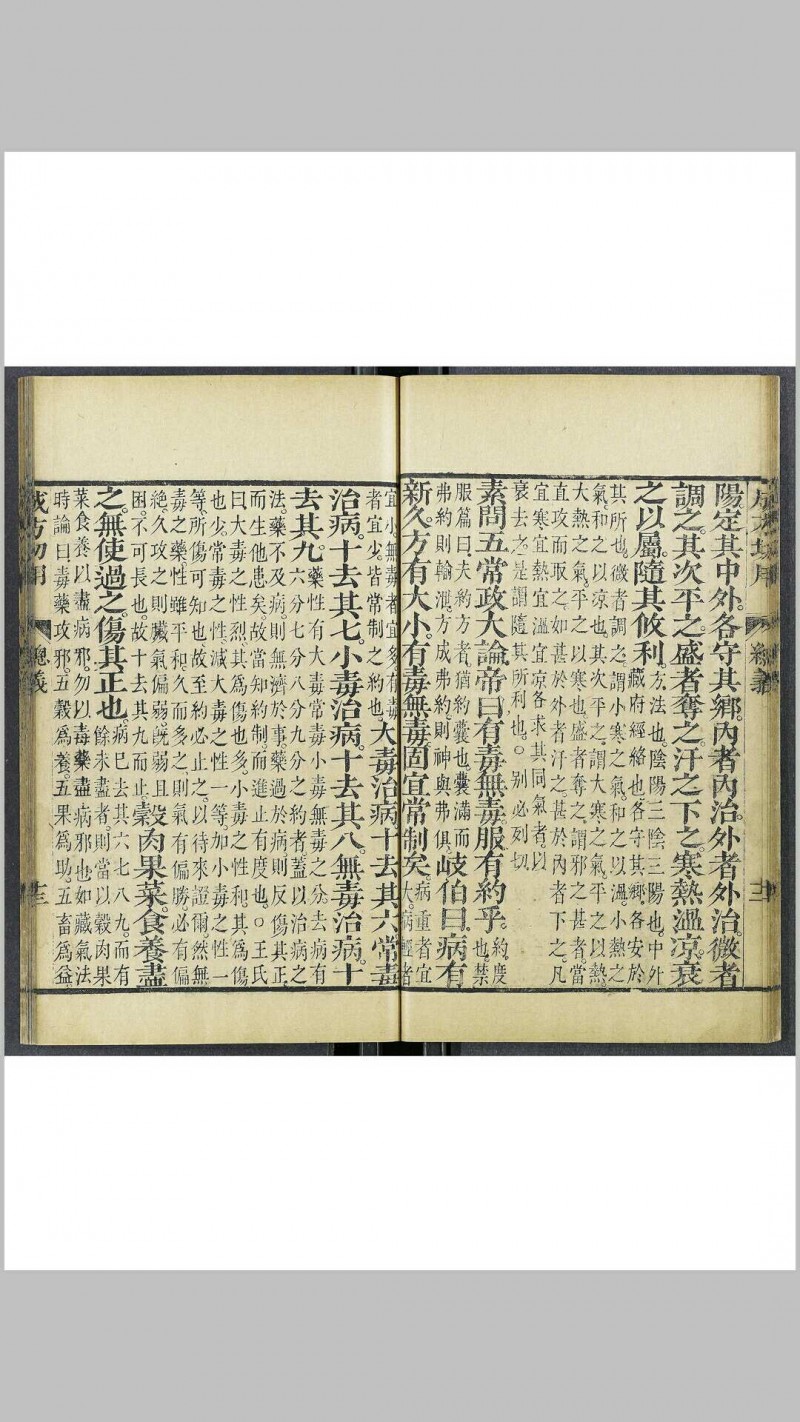 成方切用 總義 十二
陽定其中外。各守其鄉。內者內治。外者外治。微者
調之。其次平之。盛者奪之。汗之下之。寒熱溫凉。衰
之以屬。隨其攸利。方、法也。陰陽、三陰三陽也。中外、
藏府經絡也。各守其鄉、各安於
其所也。微者調之。謂小寒之氣。和之以溫。小熱之
氣。和之以凉也。其次平之。謂大寒之氣。平之以熱。
大熱之氣。平之以寒也。盛者奪之。謂邪之甚者。當
直攻而取之。如甚於外者汗之。甚於內者下之。凡
宜寒宜熱宜溫宜凉。各求其同氣者。以
衰去之。是謂隨其所利也。○別必列切
素問五常政大論。帝曰。有毒無毒。服有約乎。約、度
也。禁
服篇曰。夫約方者。猶約囊也。囊滿而
弗約。則輸泄。方成弗約。則神與弗俱。岐伯曰。病有
新久。方有大小。有毒無毒。固宜常制矣。病重者宜
大。病輕者
宜小。無毒者宜多。有毒
者宜少。皆常制之約也。大毒治病。十去其六。常毒
治病。十去其七。小毒治病。十去其八。無毒治病。十
去其九。藥性有大毒常毒小毒無毒之分。去病有
六分七分八分九分之約者。蓋以治病之
法。藥不及病。則無濟於事。藥過於病。則反傷其正。
而生他患矣。故當知約制。而進止有度也。○王氏
曰。大毒之性烈。其爲傷也多。小毒之性和。其爲傷
也少。常毒之性。減大毒之性一等。加小毒之性一
等。所傷可知也。故至約必止之。以待來證爾。然無
毒之藥。性雖平和。久而多之。則氣有偏勝。必有偏
絶。久攻之。則臟氣偏弱。旣弱且
困。不可長也。故十去其九而止。穀肉果菜。食養盡
之。無使過之。傷其正也。病已去其六七八九。而有
餘未盡者。則當以穀肉果
菜食養以盡病邪。勿以毒藥盡病邪也。如藏氣法
時論曰。毒藥攻邪。五穀爲養。五果爲助。五畜爲益。
成方切用 總義 十三